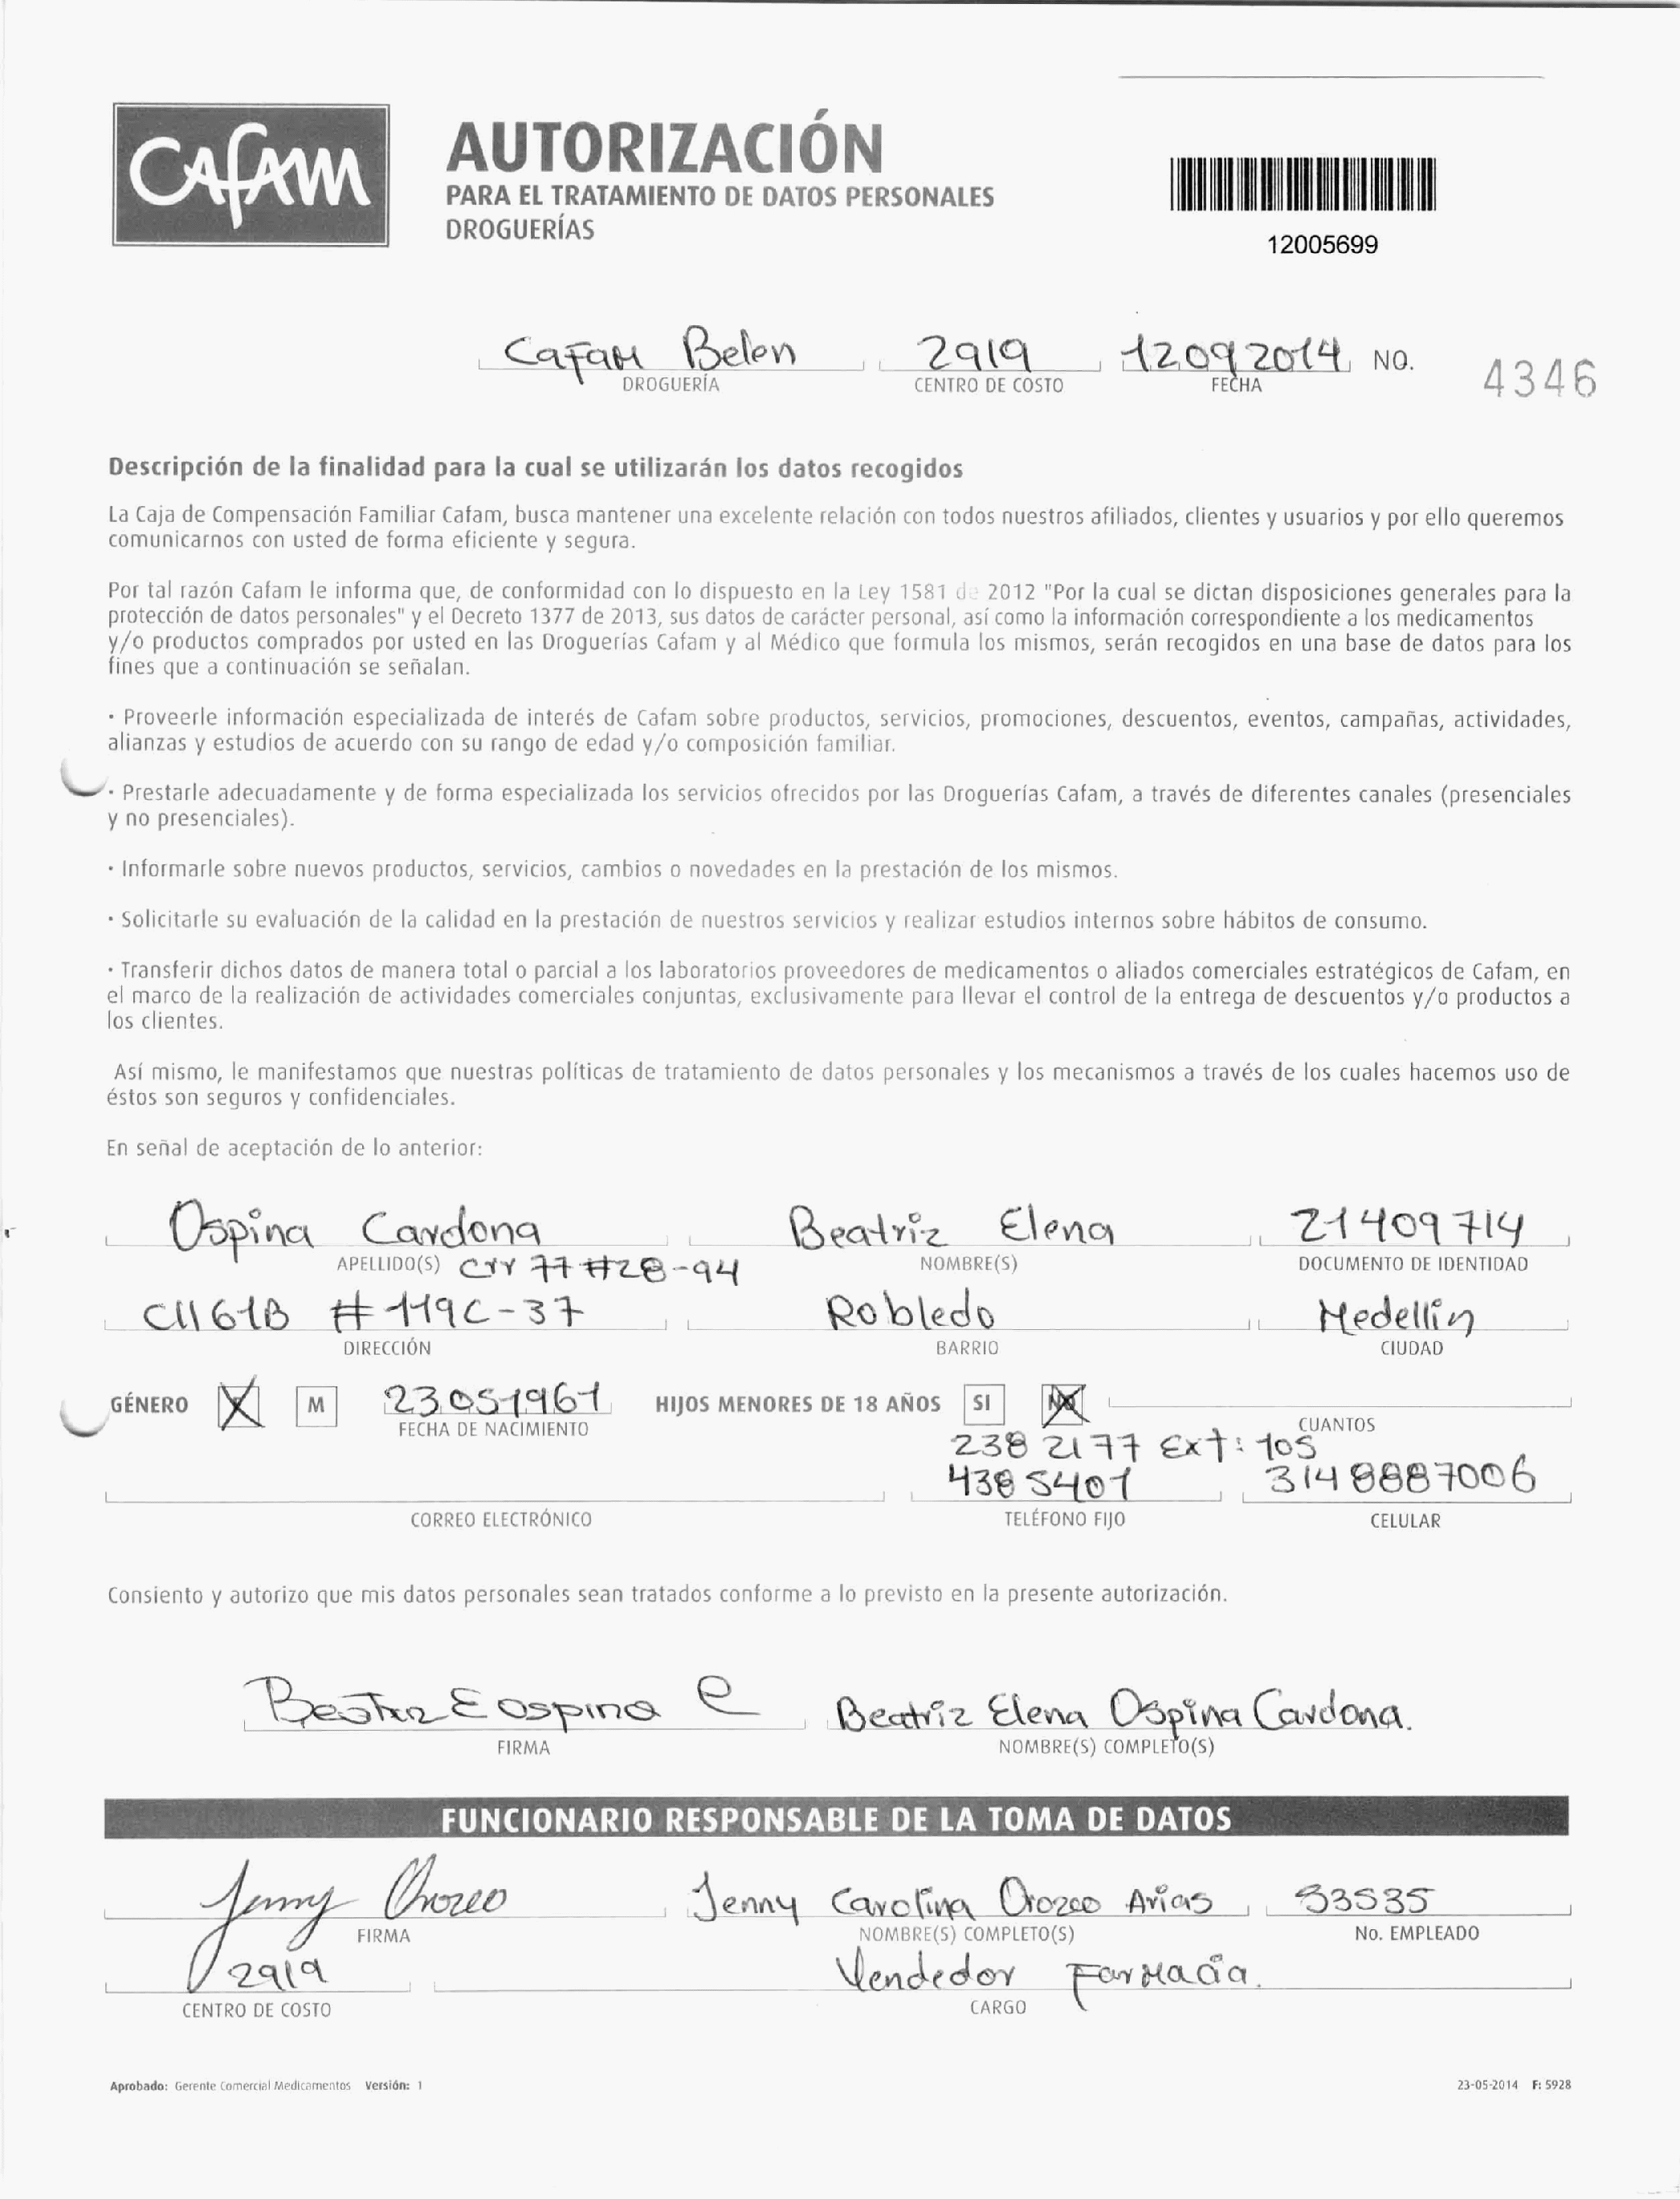 CAFAM
AUTORIZACIÓN
PARA EL TRATAMIENTO DE DATOS PERSONALES
DROGUERÍAS
12005699
Cafam Belen 2919 12092014 NO. 4346
DROGUERÍA CENTRO DE COSTO FECHA
Descripción de la finalidad para la cual se utilizarán los datos recogidos
La Caja de Compensación Familiar Cafam, busca mantener una excelente relación con todos nuestros afiliados, clientes y usuarios y por ello queremos
comunicarnos con usted de forma eficiente y segura.
Por tal razón Cafam le informa que, de conformidad con lo dispuesto en la Ley 1581 de 2012 "Por la cual se dictan disposiciones generales para la
protección de datos personales" y el Decreto 1377 de 2013, sus datos de carácter personal, así como la información correspondiente a los medicamentos
y/o productos comprados por usted en las Droguerías Cafam y al Médico que formula los mismos, serán recogidos en una base de datos para los
fines que a continuación se señalan.
· Proveerle información especializada de interés de Cafam sobre productos, servicios, promociones, descuentos, eventos, campañas, actividades,
alianzas y estudios de acuerdo con su rango de edad y/o composición familiar.
· Prestarle adecuadamente y de forma especializada los servicios ofrecidos por las Droguerías Cafam, a través de diferentes canales (presenciales
y no presenciales).
· Informarle sobre nuevos productos, servicios, cambios o novedades en la prestación de los mismos.
· Solicitarle su evaluación de la calidad en la prestación de nuestros servicios y realizar estudios internos sobre hábitos de consumo.
· Transferir dichos datos de manera total o parcial a los laboratorios proveedores de medicamentos o aliados comerciales estratégicos de Cafam, en
el marco de la realización de actividades comerciales conjuntas, exclusivamente para llevar el control de la entrega de descuentos y/o productos a
los clientes.
Así mismo, le manifestamos que nuestras políticas de tratamiento de datos personales y los mecanismos a través de los cuales hacemos uso de
éstos son seguros y confidenciales.
En señal de aceptación de lo anterior:
Ospina Cardona Beatriz Elena 21409714
APELLIDO(S) Crr 77 #28-94 NOMBRE(S) DOCUMENTO DE IDENTIDAD
Cll 61B # 119C-37 Robledo Medellín
DIRECCIÓN BARRIO CIUDAD
GÉNERO X M 23051961 HIJOS MENORES DE 18 AÑOS SI NO
FECHA DE NACIMIENTO CUANTOS
238 2177 Ext: 105
4385401 3148887006
CORREO ELECTRÓNICO TELÉFONO FIJO CELULAR
Consiento y autorizo que mis datos personales sean tratados conforme a lo previsto en la presente autorización.
Beatriz E Ospina C Beatriz Elena Ospina Cardona.
FIRMA NOMBRE(S) COMPLETO(S)
FUNCIONARIO RESPONSABLE DE LA TOMA DE DATOS
Jenny Orozco Jenny Carolina Orozco Arias 53535
FIRMA NOMBRE(S) COMPLETO(S) No. EMPLEADO
2919 Vendedor Farmacia.
CENTRO DE COSTO CARGO
Aprobado: Gerente Comercial Medicamentos Versión: 1 23-05-2014 F: 5928